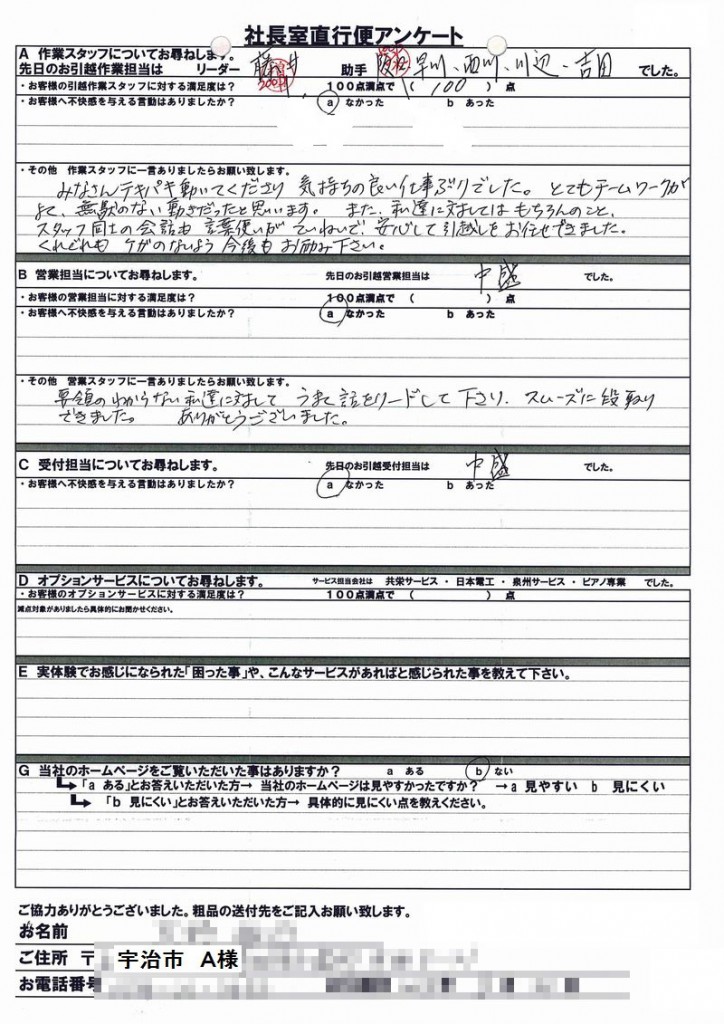 社長室直行便アンケート
A 作業スタッフについてお尋ねします。
先日のお引越作業担当は リーダー 藤井 助手 早川、西川、川辺、吉田 でした。
・お客様の引越作業スタッフに対する満足度は? 100点満点で ( 100 ) 点
・お客様へ不快感を与える言動はありましたか? a なかった b あった
・その他 作業スタッフに一言ありましたらお願い致します。
みなさんテキパキ動いてくださり 気持ちの良い仕事ぶりでした。 とてもチームワークが
よく、無駄のない動きだったと思います。 また、私達に対してはもちろんのこと、
スタッフ同士の会話も 言葉使いが ていねいで、安心して引越しをお任せできました。
くれぐれも ケガのないよう 今後も お励み下さい。
B 営業担当についてお尋ねします。 先日のお引越営業担当は 中盛 でした。
・お客様の営業担当に対する満足度は? 100点満点で ( ) 点
・お客様へ不快感を与える言動はありましたか? a なかった b あった
・その他 営業スタッフに一言ありましたらお願い致します。
要領のわからない私達に対して うまく話をリードして下さり、スムーズに段取り
できました。 ありがとうございました。
C 受付担当についてお尋ねします。 先日のお引越受付担当は 中盛 でした。
・お客様へ不快感を与える言動はありましたか? a なかった b あった
D オプションサービスについてお尋ねします。 サービス担当会社は 共栄サービス ・ 日本電工 ・ 泉州サービス ・ ピアノ専業 でした。
・お客様のオプションサービスに対する満足度は? 100点満点で ( ) 点
減点対象がありましたら具体的にお聞かせください。
E 実体験でお感じになられた「困った事」や、こんなサービスがあればと感じられた事を教えて下さい。
G 当社のホームページをご覧いただいた事はありますか? a ある b ない
「a ある」とお答えいただいた方→ 当社のホームページは見やすかったですか? →a 見やすい b 見にくい
「b 見にくい」とお答えいただいた方→ 具体的に見にくい点を教えください。
ご協力ありがとうございました。粗品の送付先をご記入お願い致します。
お名前
ご住所 〒 宇治市 A様
お電話番号